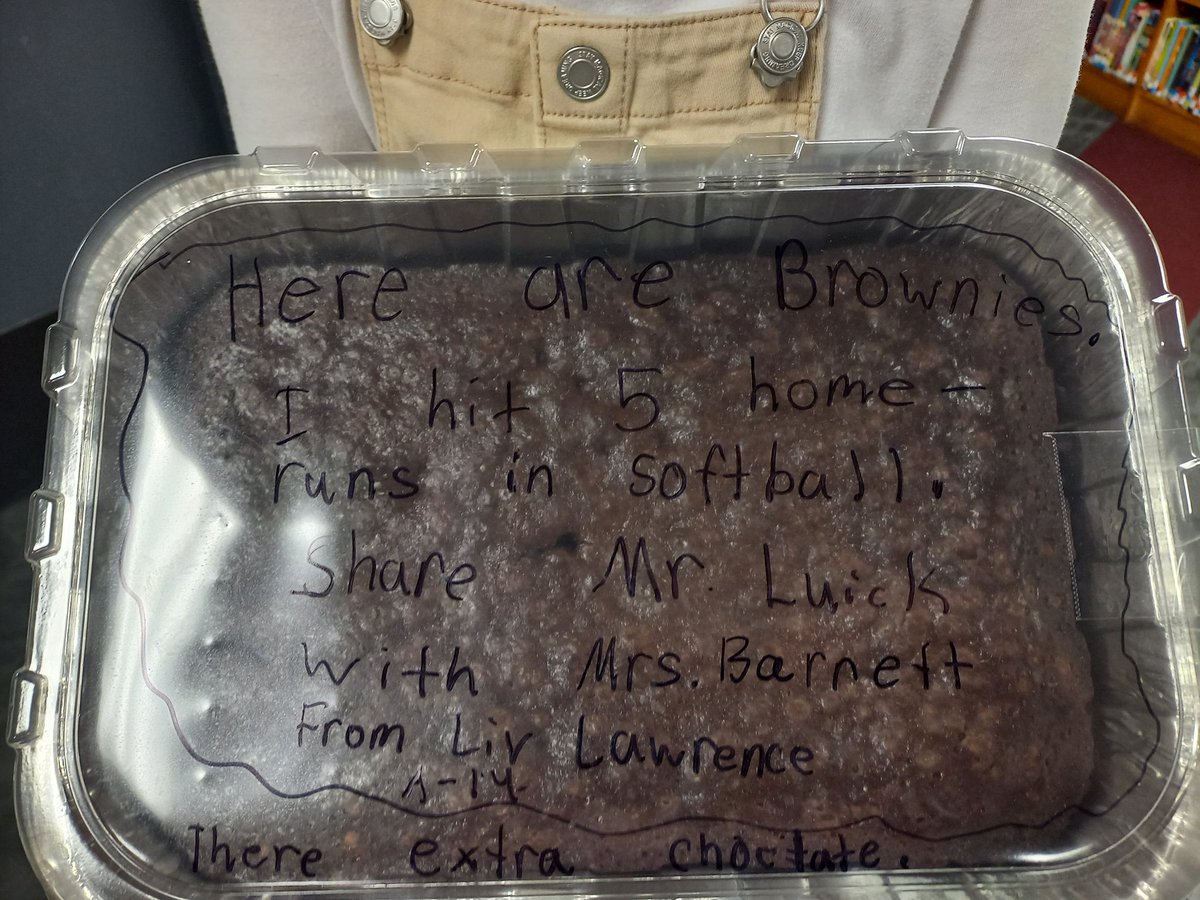 Here are Brownies.
I hit 5 home-
runs in softball.
Share Mr. Luick
with Mrs. Barnett
From Liv Lawrence
A-14
There extra choctate.